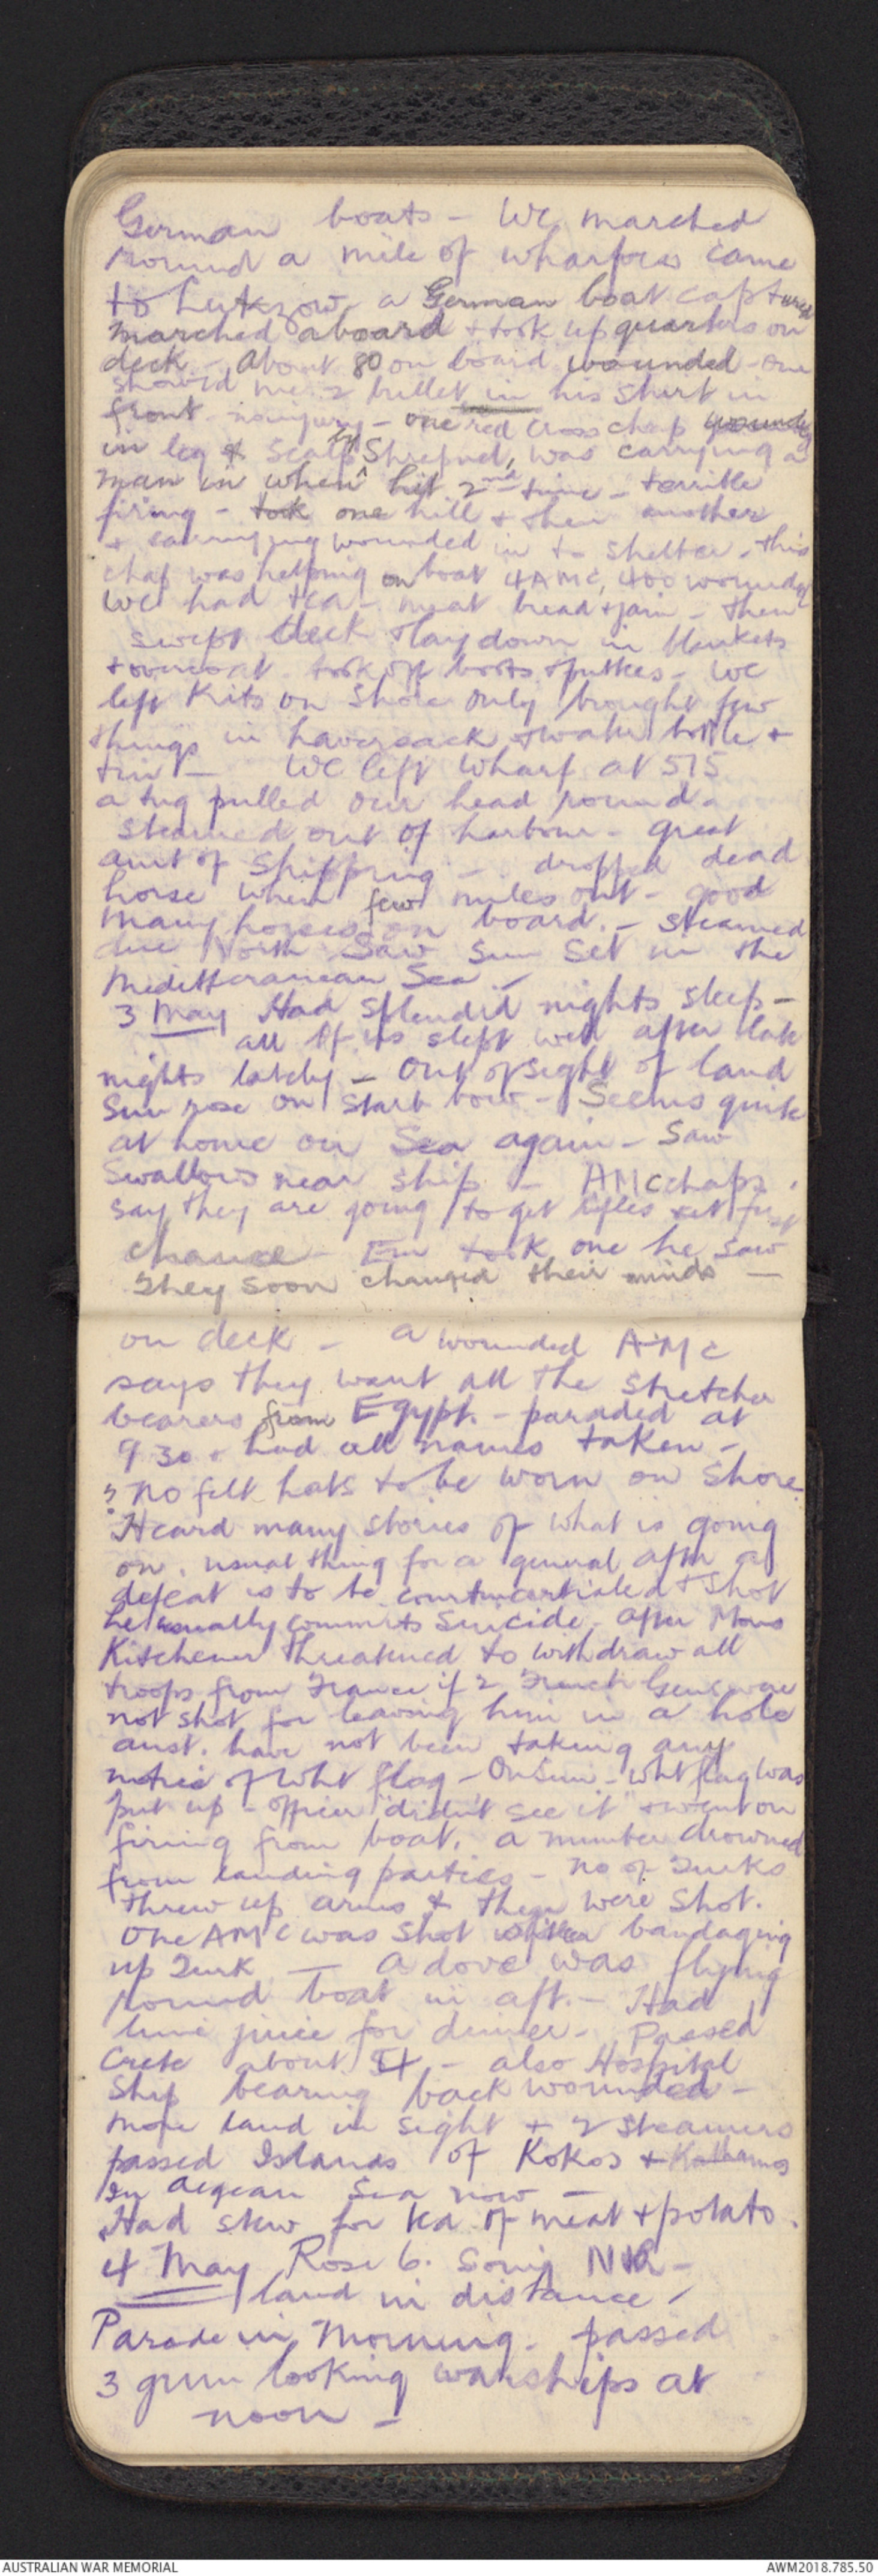 German boats - We marched
round a mile of wharfees came
to Lutzow - a German boat captured
marched aboard + took up quarters on
deck - About 80 on board wounded - one
showed me 2 bullet in his shirt in
front - no injury - one red cross chap wounded
in leg & scalp by Shrapnel, was carrying a
man in when hit 2nd time - terrible
firing - took one hill + then another
+ carrying wounded in to shelter - this
chap was helping on boat 4 AMC, 400 wounded
We had tea - meat bread + jam - then
swept deck + lay down in blankets
+ overcoat took off boots + puttees - We
left Kits on shore only brought few
things in haversack + water bottle +
tin - We left Wharf at 515
a tug pulled our head round -
steamed out of harbour - great
amt of shipping - dropped dead
horse when few miles out - good
many horses on board. - steamed
due North Saw Sun Set in the
Meditteranean Sea -
3 May Had Splendid nights sleep -
all of us slept well after late
nights lately - Out of sight of land
Sun rose on Starb bow - Seems quite
at home on Sea again - Saw
Swallows near ship - AMC chaps
say they are going to get rifles first
chance - took one he saw
They soon changed their minds -
on deck - a wounded AMC
says they want all the stretcher
bearers from Egypt. - paraded at
9 30 + had all names taken -
? No felt hats to be worn on shore.
Heard many stories of what is going
on. usual thing for a general after a
defeat is to be courtmartialed + shot
he usually commits Suicide - after Mons
Kitchener threatened to withdraw all
troops from France if 2 French Gens were
not shot for leaving him in a hole
aust. have not been taking any
notice of Wht flag - On Sun - wht flag was
put up - officer "didn't see it" + went on
firing from boat. a number drowned
from landing parties - No of Turks
threw up arms & then were shot.
One AMC was shot when bandaging
up Turk - A dove was flying
round boat in aft. - Had
lime juice for dinner - Passed
Crete about - also Hospital
Ship bearing back wounded -
more land in sight + 2 steamers
passed Islands of Kokos +
In Aegean Sea now -
Had stew for tea of meat + potato.
4 May Rose 6. Going
land in distance -
Parade in Morning - passed
3 grim looking warships at
noon -
AUSTRALIAN WAR MEMORIAL
AWM2018.785.50